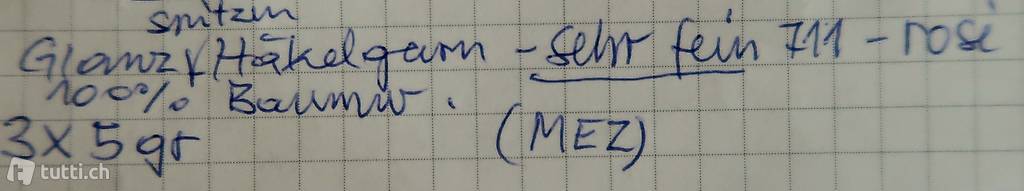 spitzen
Glanz Häkelgarn - sehr fein 711 - rosé
100% Baumw.
3 x 5 gr (MEZ)
tutti.ch